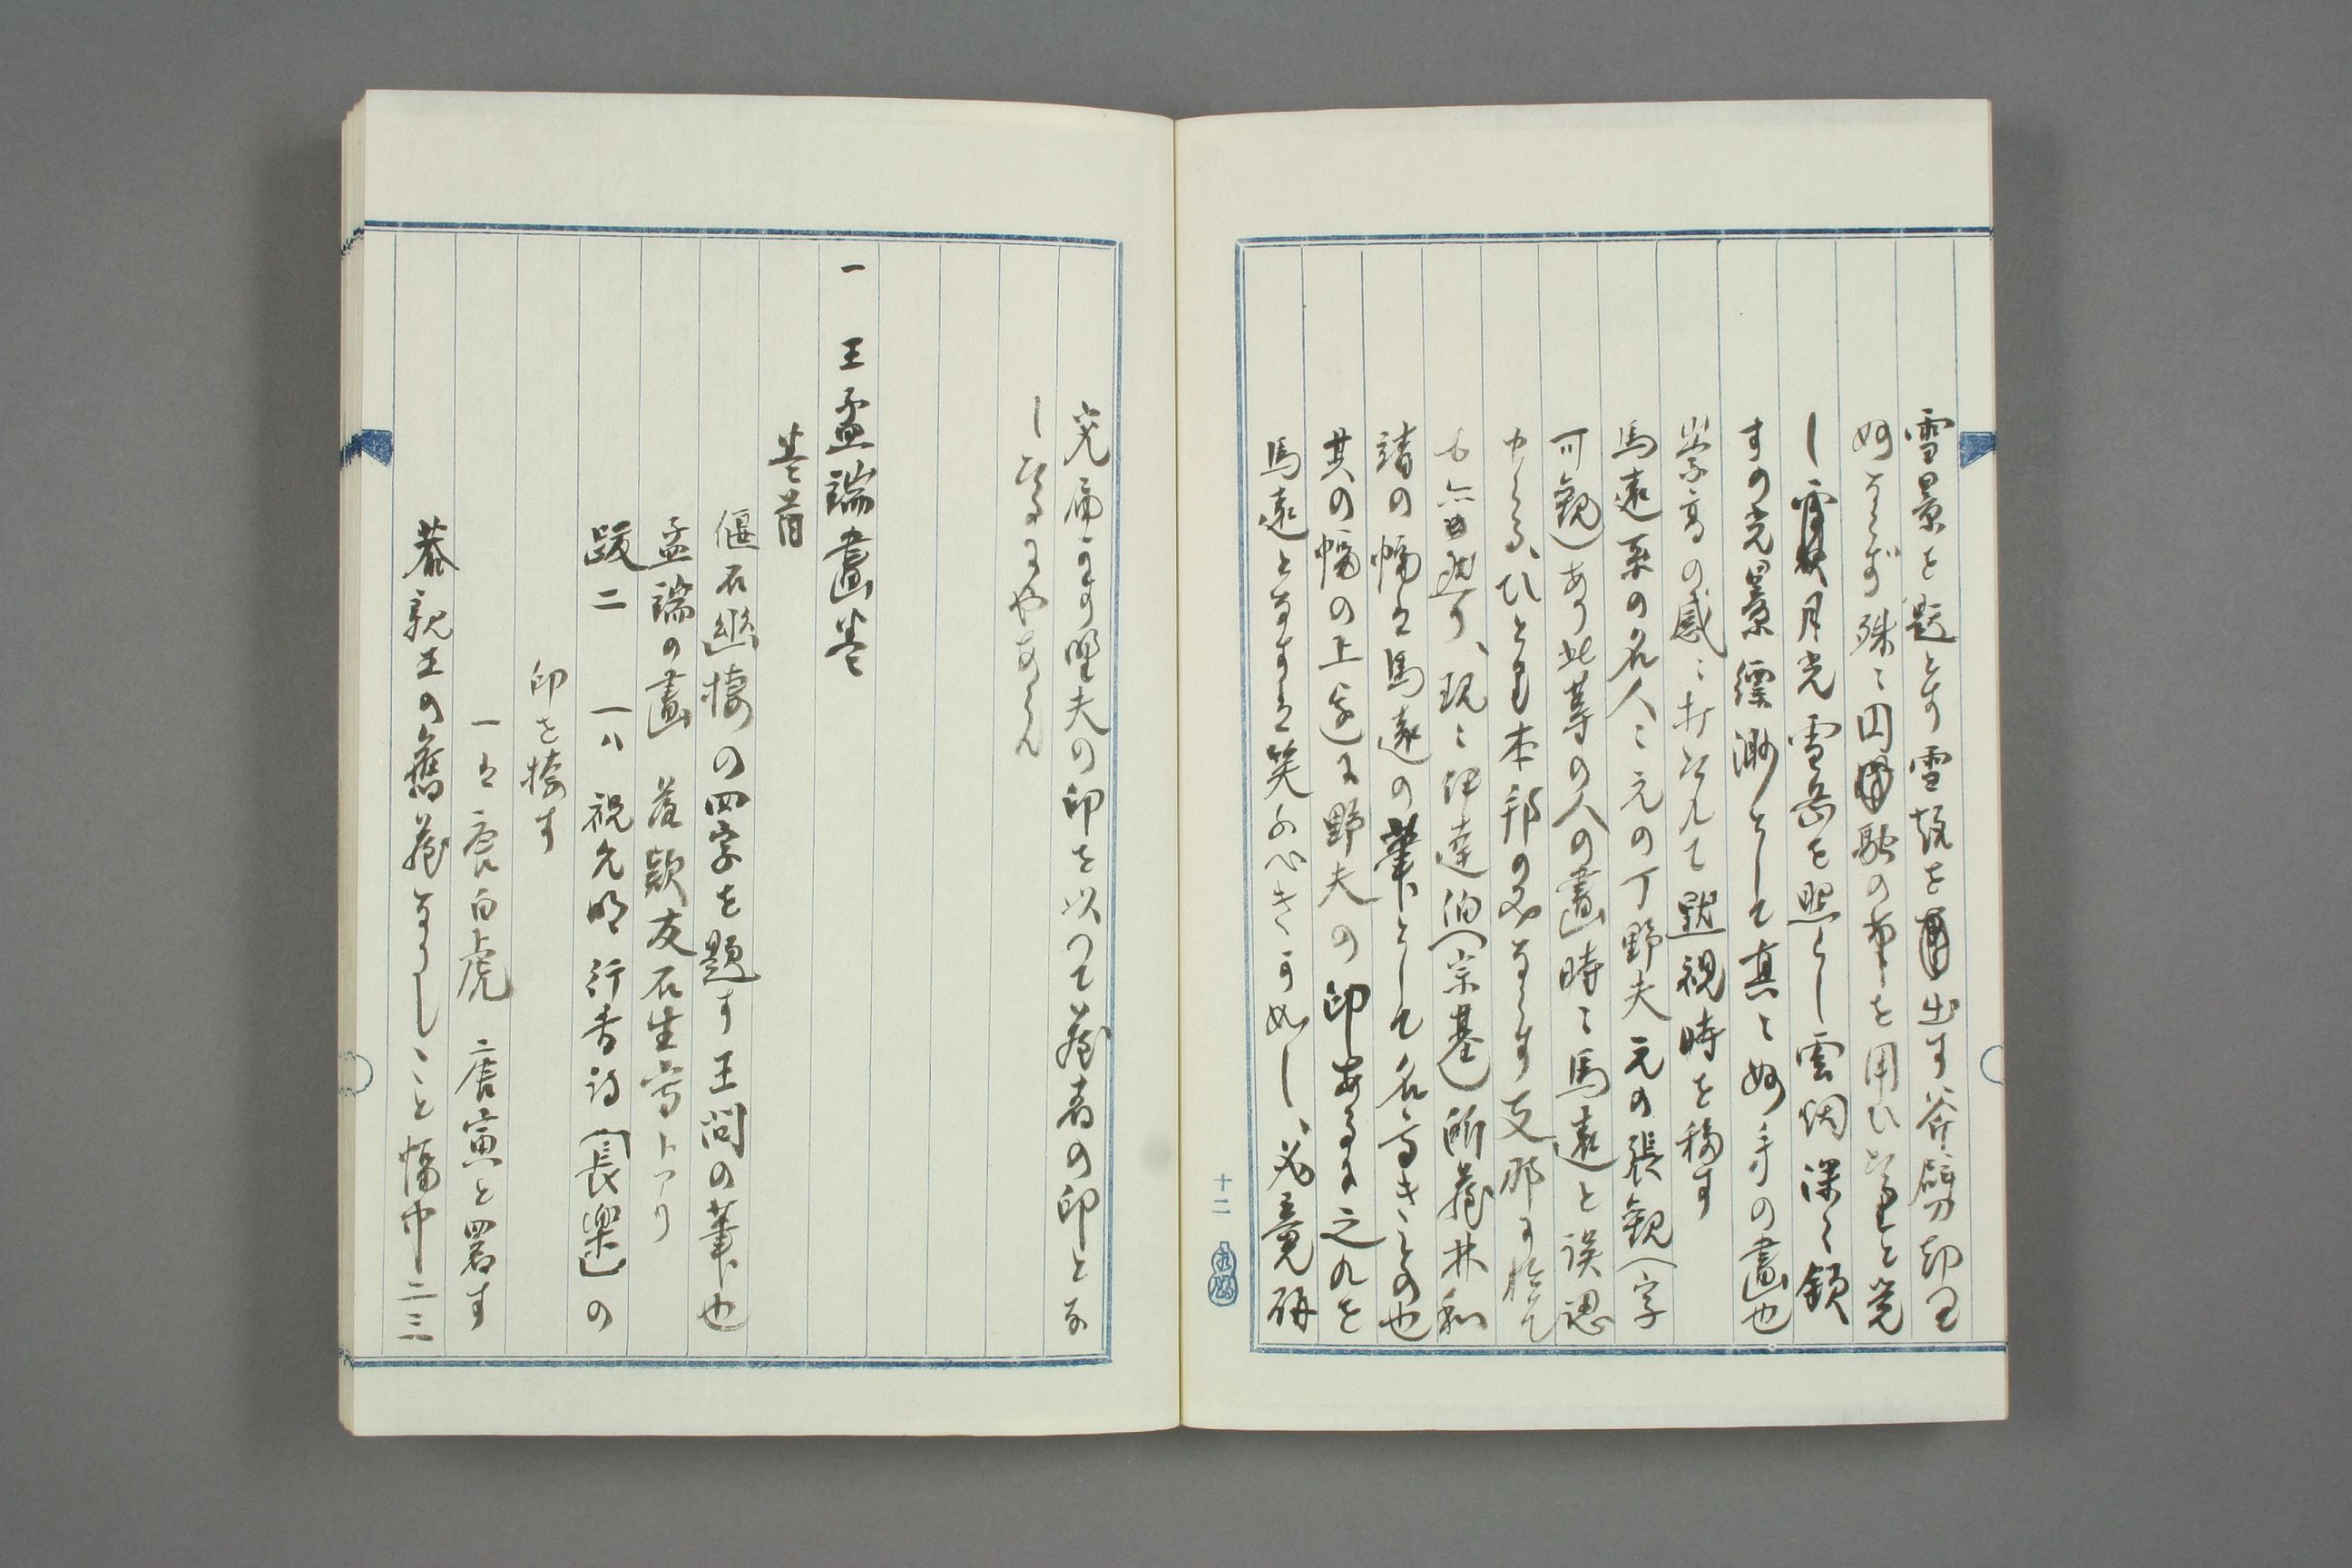 雪景を題とす雪坡を出す斧劈却て
妙ならず殊に円融の筆を用ひたりと覚
し霄月光雪岳を照らし雲烟深く鎖
すの光景縹渺として真に妙手の畫也
崇高の感に打たれて黙視時を移す
馬遠系の名人に元の丁野夫元の張観(字
可観)あり此等の人の畫時に馬遠と誤認
せらる、ひとり本邦のみならず支那に於て
も亦然り、現に伊達伯(宗基)所蔵林和
靖の幅は馬遠の筆として名高きもの也
其の幅の上邊に野夫の印あるに之れを
馬遠となすは笑ふべきが如し、必竟研
究届かず野夫の印を以つて蔵者の印とな
したるにやあらん
一 王孟端畫巻
巻首
偃石幽棲の四字を題す王問の筆也
孟端の畫 落款友石生寫トアリ
跋二 一ハ祝允明行書詩(長樂)の
印を捺す
一は唐白虎 唐寅と署す
恭親王の舊蔵なりしこと幅中二三
十二